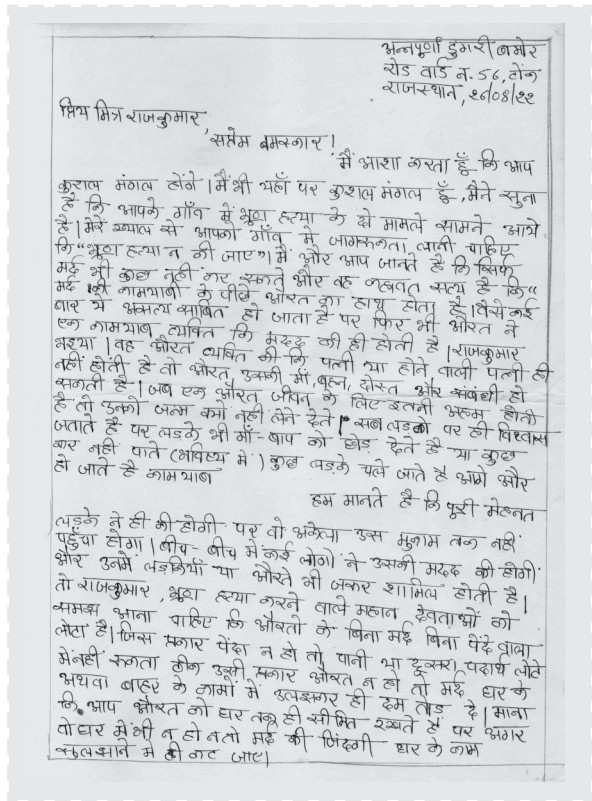 अन्नपूर्णा डुंगरी बमोर
रोड वार्ड न. 56, टोंक
राजस्थान, २८/08/२२
प्रिय मित्र राजकुमार,
सप्रेम नमस्कार !
मैं आशा करता हूँ कि आप
कुशल मंगल होंगे । मैं भी यहाँ पर कुशल मंगल हूँ, मैने सुना
है कि आपके गाँव में भ्रूण हत्या के दो मामले सामने आये
है । मेरे ख्याल से आपको गाँव में जागरूकता लानी चाहिए
कि "भ्रूण हत्या न की जाए" । मैं और आप जानते है कि सिर्फ
मर्द भी कुछ नहीं कर सकते और वह कहावत सत्य है कि "
मर्द की कामयाबी के पीछे औरत का हाथ होता है । वैसे कई
बार ये असत्य साबित हो जाता है पर फिर भी औरत ने
एक कामयाब व्यक्ति कि मदद की ही होती है । राजकुमार
भइया । वह औरत व्यक्ति की कि पत्नी या होने वाली पत्नी ही
नहीं होती है वो औरत, उसकी माँ, बहन, दोस्त और संबंधी हो
सकती है । जब एक औरत जीवन के लिए इतनी अहम होती
है तो उनको जन्म क्यों नही लेने देते । सब लड़को पर ही विश्वास
जताते है पर लडके भी माँ-बाप को छोड़ देते है या कुछ
कर नही पाते (भविष्य में) कुछ लड़के चले जाते है आगे और
हो जाते है कामयाब
हम मानते है कि पूरी मेहनत
लड़के ने ही की होगी पर वो अकेला उस मुकाम तक नही
पहुँचा होगा । बीच-बीच में कई लोगो ने उसकी मदद की होगी
और उनमें लड़कियाँ या औरते भी जरूर शामिल होती है |
तो राजकुमार, भ्रूण हत्या करने वाले महान देवताओं को
समझ आना चाहिए कि औरतो के बिना मर्द बिना पेंदे वाला
लोटा है । जिस प्रकार पेंदा न हो तो पानी या दूसरा पदार्थ लोटे
में नहीं रुकता ठीक उसी प्रकार औरत न हो तो मर्द घर के
अथवा बाहर के कामों में उलझकर ही दम तोड़ दे | माना
कि आप औरत को घर तक ही सीमित रखते है पर अगर
वो घर में भी न हो न तो मर्द की जिंदगी घर के काम
सुलझाने में ही कट जाए।